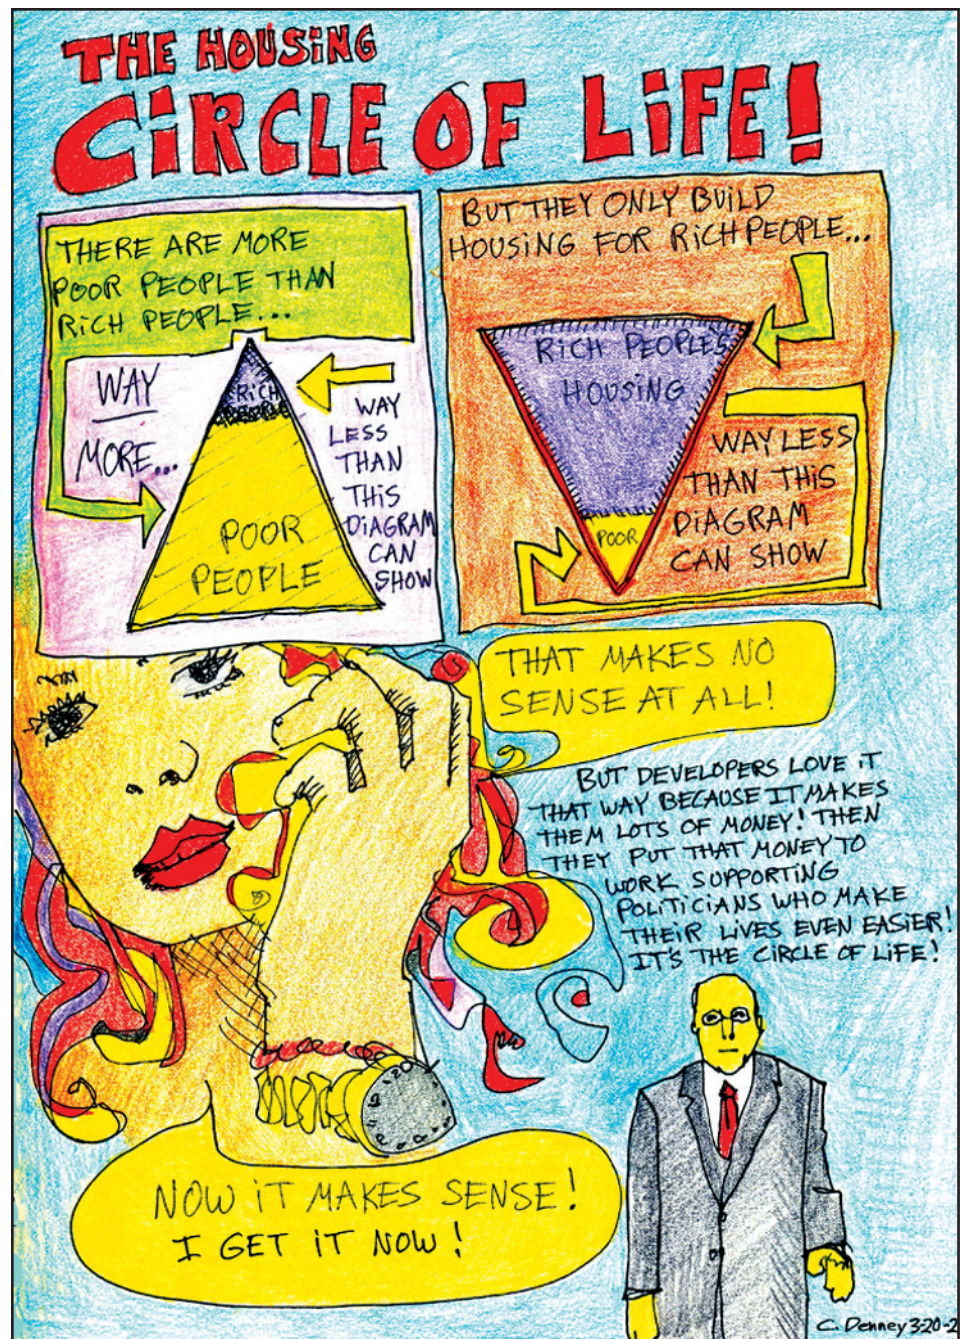 THE HOUSiNG
CiRCLE OF LiFE!
THERE ARE MORE
POOR PEOPLE THAN
RiCH PEOPLE...
WAY
MORE...
RiCH
PEOPLE
POOR
PEOPLE
WAY
LESS
THAN
THiS
DiAGRAM
CAN
SHOW
BUT THEY ONLY BUILD
HOUSiNG FOR RiCH PEOPLE...
RiCH PEOPLES
HOUSiNG
POOR
WAY LESS
THAN THiS
DiAGRAM
CAN SHOW
THAT MAKES NO
SENSE AT ALL!
BUT DEVELOPERS LOVE iT
THAT WAY BECAUSE IT MAKES
THEM LOTS OF MONEY! THEN
THEY PUT THAT MONEY TO
WORK SUPPORTiNG
POLiTiCiANS WHO MAKE
THEiR LiVES EVEN EASiER!
IT'S THE CiRCLE OF LiFE!
NOW iT MAKES SENSE!
I GET iT NOW!
C. Denney 3-20-2